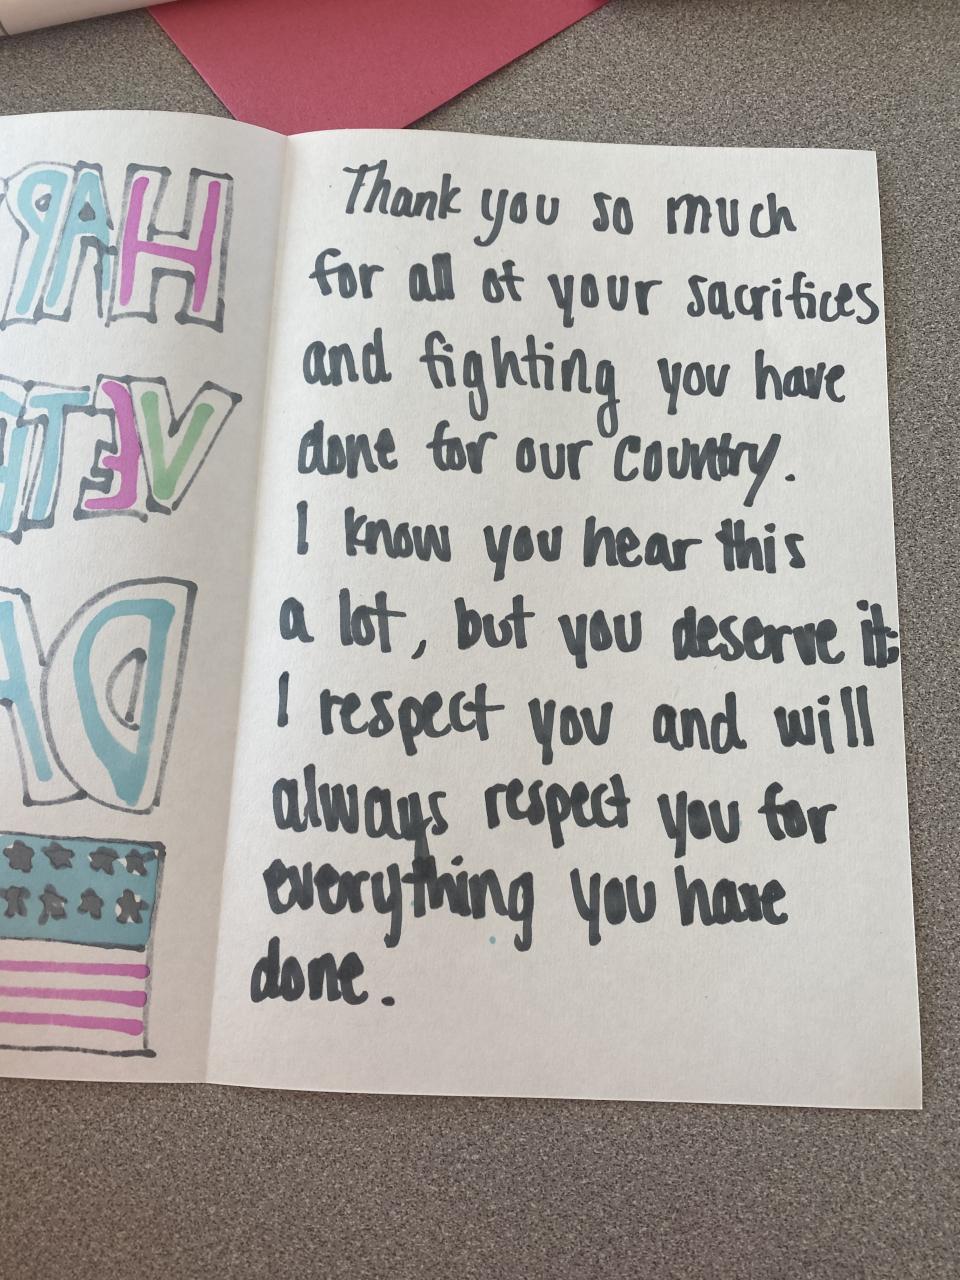 HAP
VET
DA
Thank you so much
for all of your sacrifices
and fighting you have
done for our country.
I know you hear this
a lot, but you deserve it.
I respect you and will
always respect you for
everything you have
done.